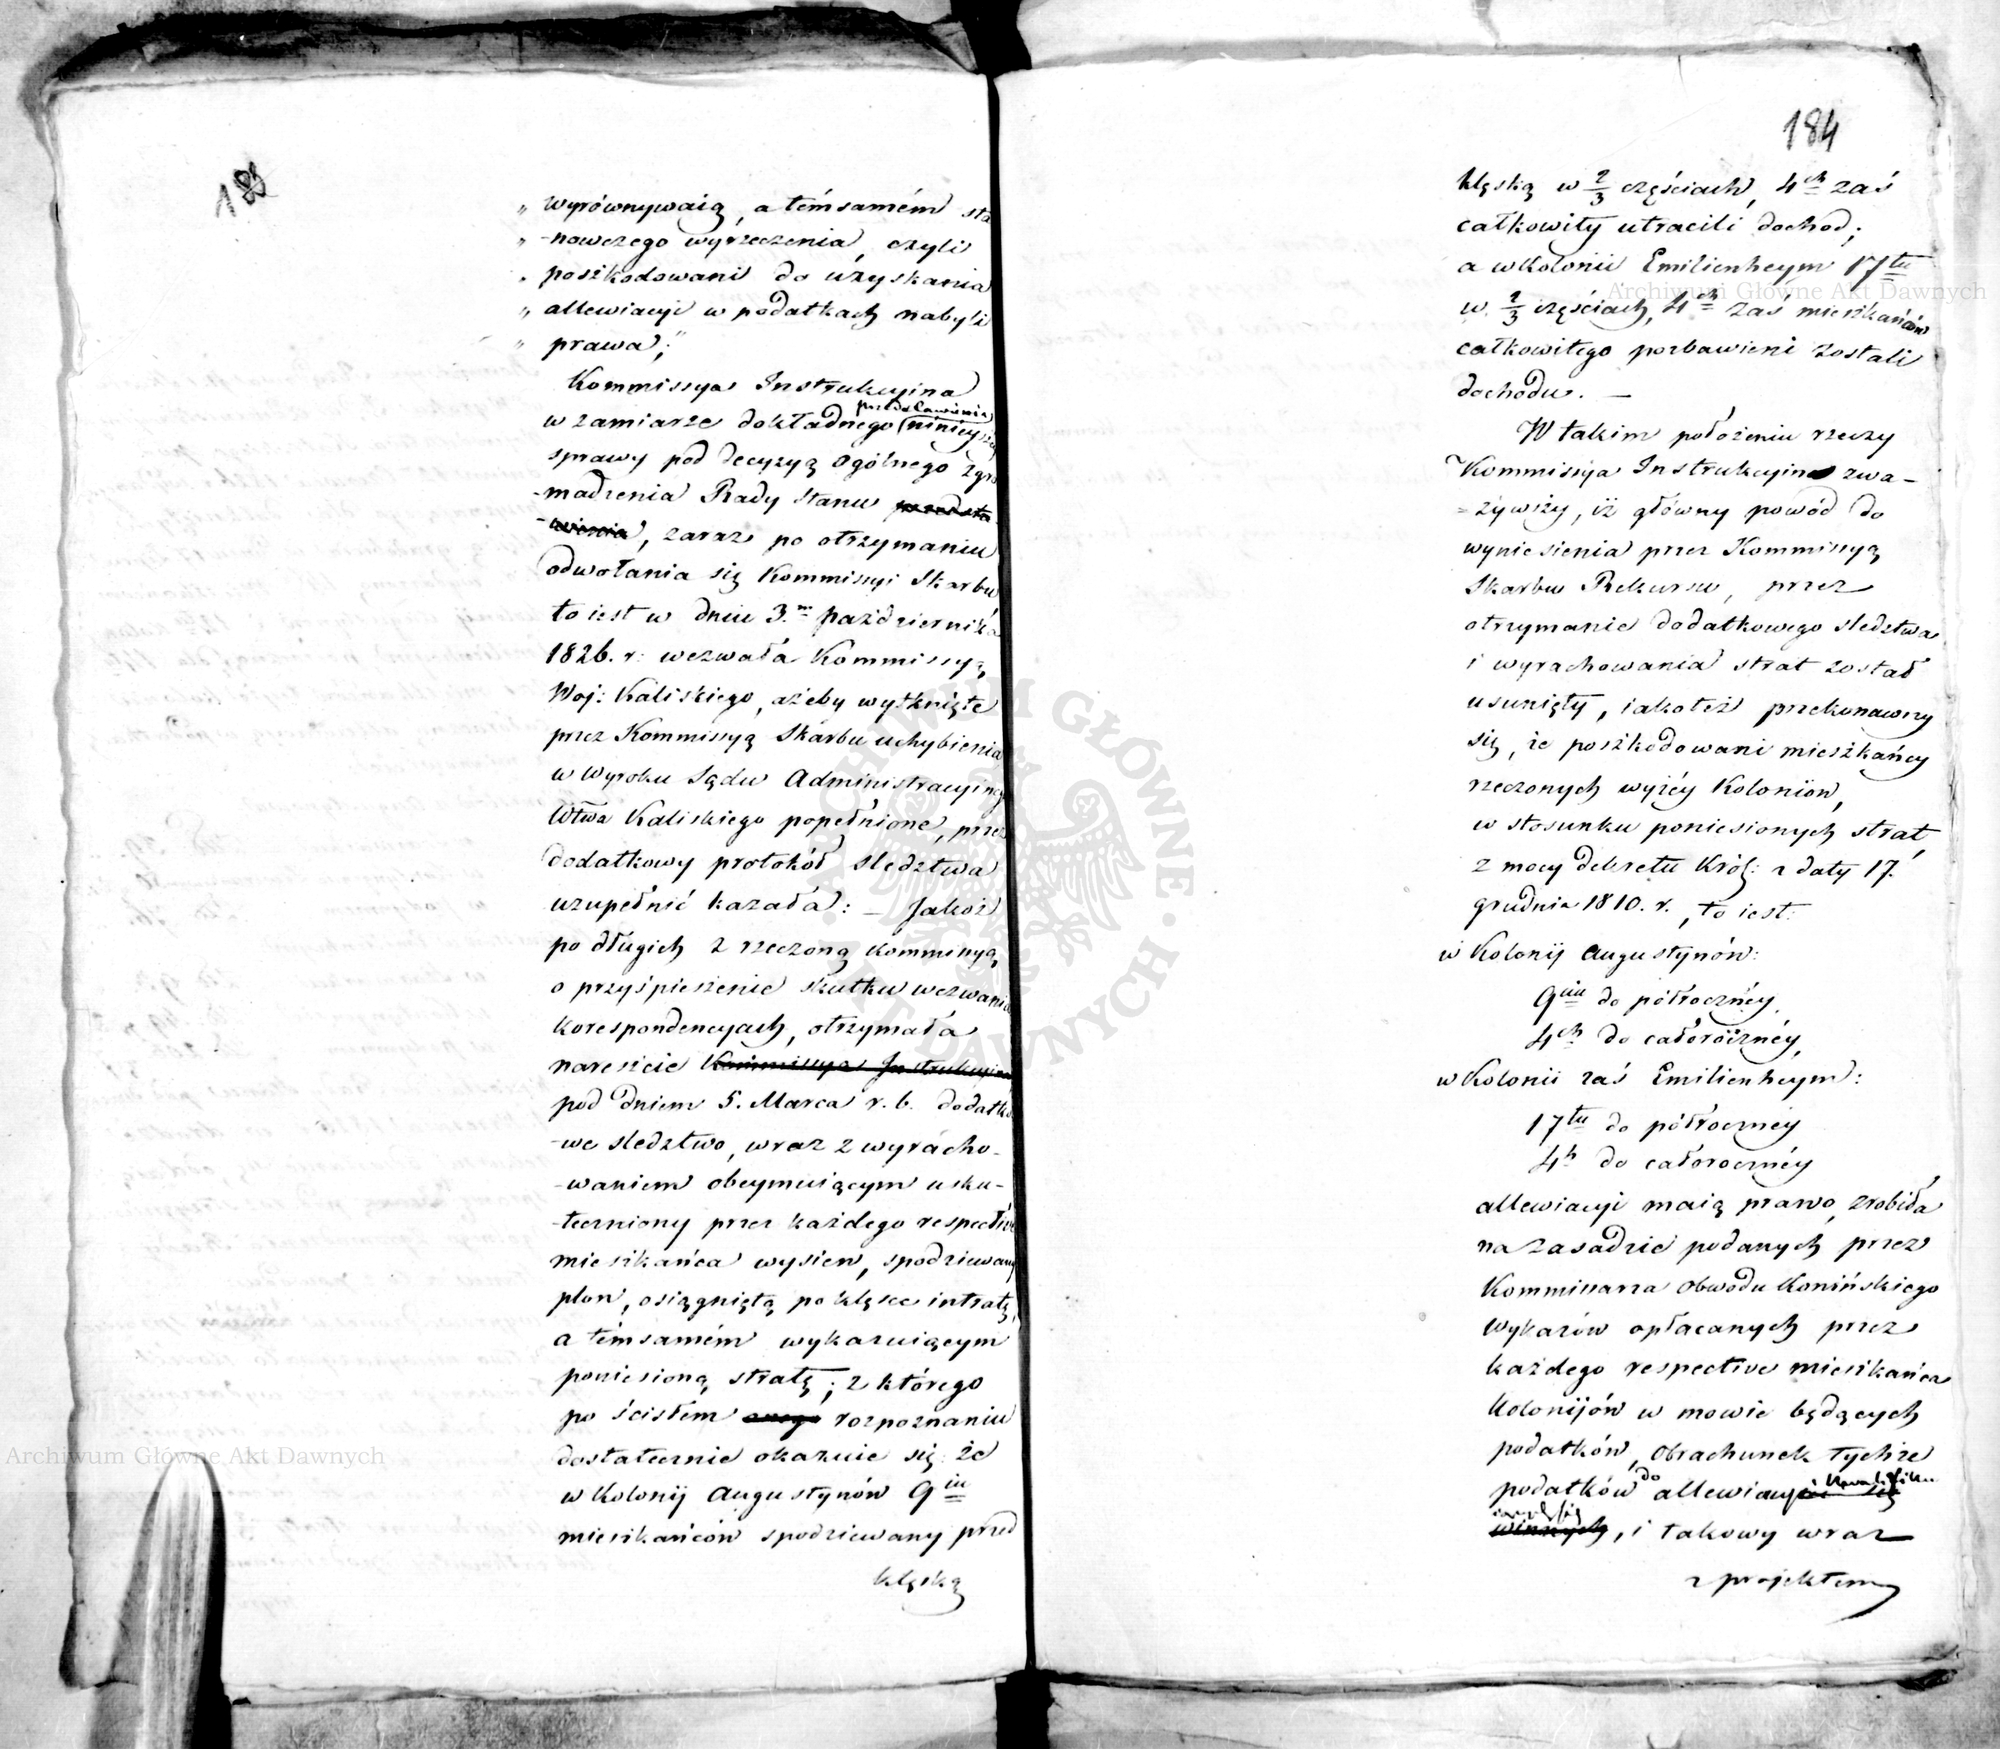 „ wyrównywaią, a témsamém sta
„ -nowczego wyrzeczenia, czyli
„ poszkodowani do uzyskania
„ allewiacyi w podatkach nabyli
„ prawa;"
Kommissya Instrukcyina
przedstawienia
w zamiarze dokładnego ninieyszey
sprawy pod decyzyą Ogólnego Zgro
-madzenia Rady Stanu przedsta
-wienia, zaraz po otrzymaniu
odwołania się Kommissyi Skarbu
to iest w dniu 3. Października
1826. r: wezwała Kommissyą
Woj: Kaliskiego, ażeby wytknięte
przez Kommissyą Skarbu uchybienia
w Wyroku Sądu Administracyinego
Wtwa Kaliskiego popełnione, przez
dodatkowy protokół sledztwa
uzupełnić kazała: – Jakoż
po długich z rzeczoną Kommissyą
o przyśpieszenie skutku wezwania
korespondencyach, otrzymała
nareszcie Kommissya Instrukcyina
pod dniem 5. Marca r. b. dodatko
-we sledztwo, wraz z wyracho-
-waniem obeymuiącym usku-
-teczniony przez każdego respective
mieszkańca wysiew, spodziewany
plon, osiągniętą po klęsce intratę,
a témsamém wykazuiącym
poniesioną stratę; z którego
po ścisłem onego rozpoznaniu
dostatecznie okazuie się że
w Kolonij Augustynów 9ciu
mieszkańców spodziewany przed
klęską
184
klęską w 2/3 częściach, 4ch zaś
całkowity utracili dochod;
a w Kolonii Emilienheym 17tu
w 2/3 częściach, 4ch zaś mieszkańców
całkowitego pozbawieni zostali
dochodu. –
W takim położeniu rzeczy
Kommissya Instrukcyina zwa-
-żywszy, iż główny powód do
wyniesienia przez Kommissyą
Skarbu Rekursu, przez
otrzymanie dodatkowego sledztwa
i wyrachowania strat został
usunięty, iakoteż przekonawszy
się, że poszkodowani mieszkańcy
rzeczonych wyżéy Koloniiow,
w stosunku poniesionych strat
z mocy dekretu Król: z daty 17.
grudnia 1810. r., to iest:
w Kolonij Augustynów:
9ciu do półroczney,
4ch do całorocznéy,
w Kolonii zaś Emilienheym:
17tu do półrocznéy
4h do całorocznéy
allewiacyi maią prawo, zrobiła
na zasadzie podanych przez
Kommissarza Obwodu Konińskiego
wykazów opłacanych przez
każdego respective mieszkańca
Kolonijów w mowie będących
podatków, obrachunek tychże
podatków do allewiacyi
, i takowy wraz
z projektem
Archiwum Główne Akt Dawnych
Archiwum Główne Akt Dawnych
ARCHIWUM GŁÓWNE AKT DAWNYCH